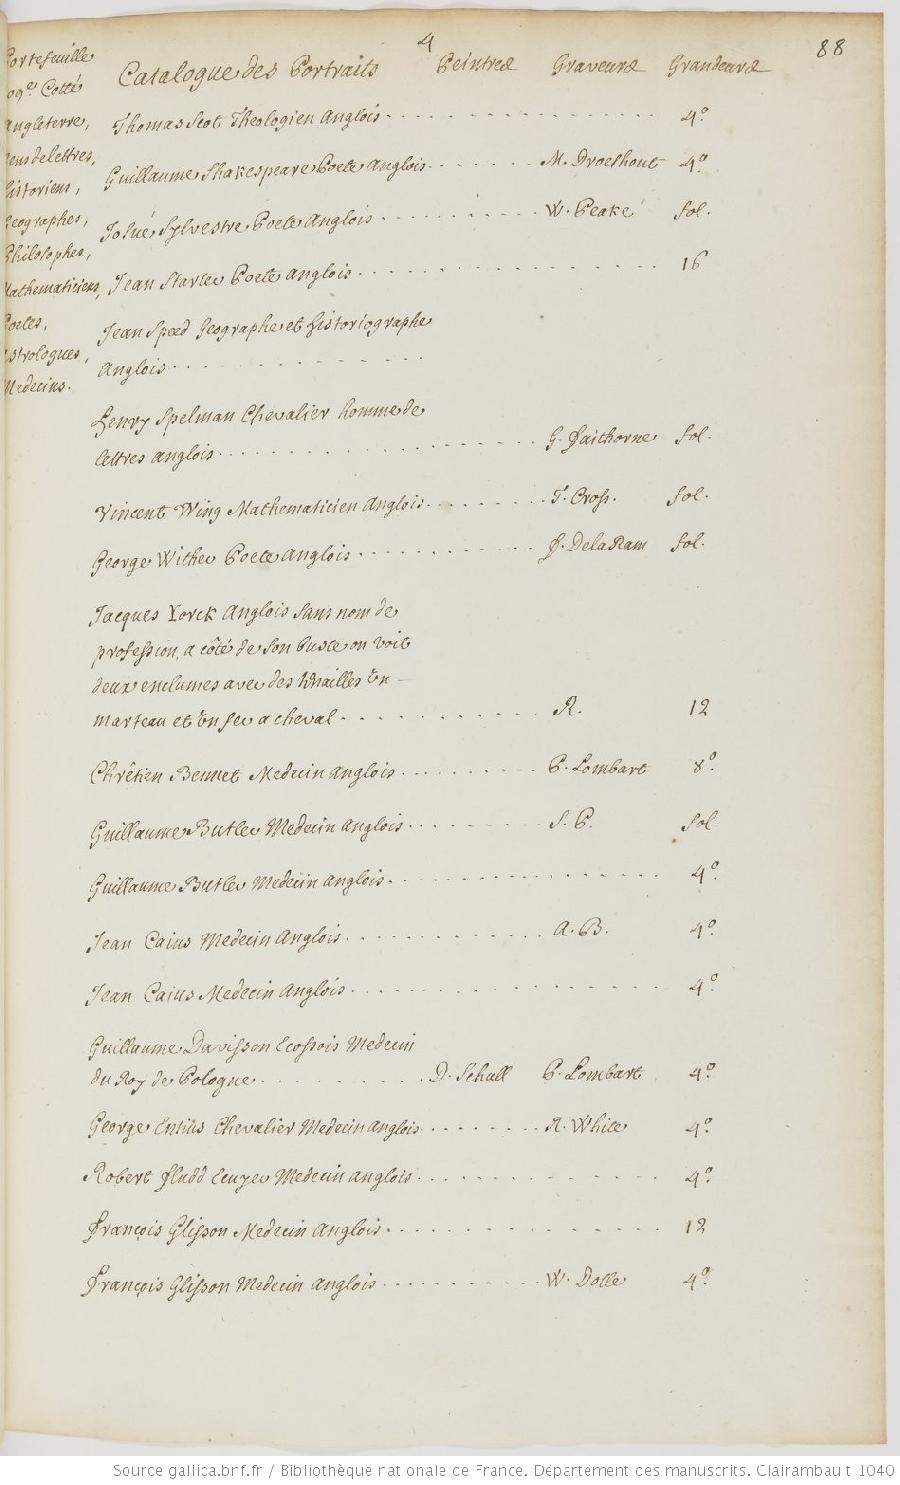 4
88
Portefeuille
Cotté
Angleterre,
Gens de lettres,
Historiens,
Geographes,
Philosophes,
Mathematiciens,
Poetes,
Astrologues,
Medecins.
Catalogue des Portraits Peintres Graveurs Grandeurs
Thomas Scot Theologien Anglois 4º
Guillaume Shakespeare Poete Anglois M. Droeshout 4º
Josué Sylvestre Poete Anglois W. Peake fol.
Jean Starter Poete Anglois 16
Jean Speed Geographe et Historiographe
Anglois
Henry Spelman Chevalier homme de
lettres Anglois G. Faithorne fol.
Vincent Wing Mathematicien Anglois T. Cross. fol.
George Wither Poete Anglois F. DelaRam fol.
Jacques Yorck Anglois sans nom de
profession, a côté de son buste on voit
deux enclumes avec des tenailles un
marteau et un fer a cheval R. 12
Chrêtien Bennet Medecin Anglois P. Lombart 8º
Guillaume Butler Medecin Anglois S. P. fol
Guillaume Butler Medecin Anglois 4º
Jean Caius Medecin Anglois A. B. 4º
Jean Caius Medecin Anglois 4º
Guillaume Davisson Ecossois Medecin
du Roy de Pologne D. Schull P. Lombart 4º
George Entius Chevalier Medecin Anglois R. White 4º
Robert Fludd Ecuyer Medecin Anglois 4º
François Glisson Medecin Anglois 12
François Glisson Medecin Anglois W. Dolle 4º
Source gallica.bnf.fr / Bibliothèque nationale de France. Département des manuscrits. Clairambault 1040